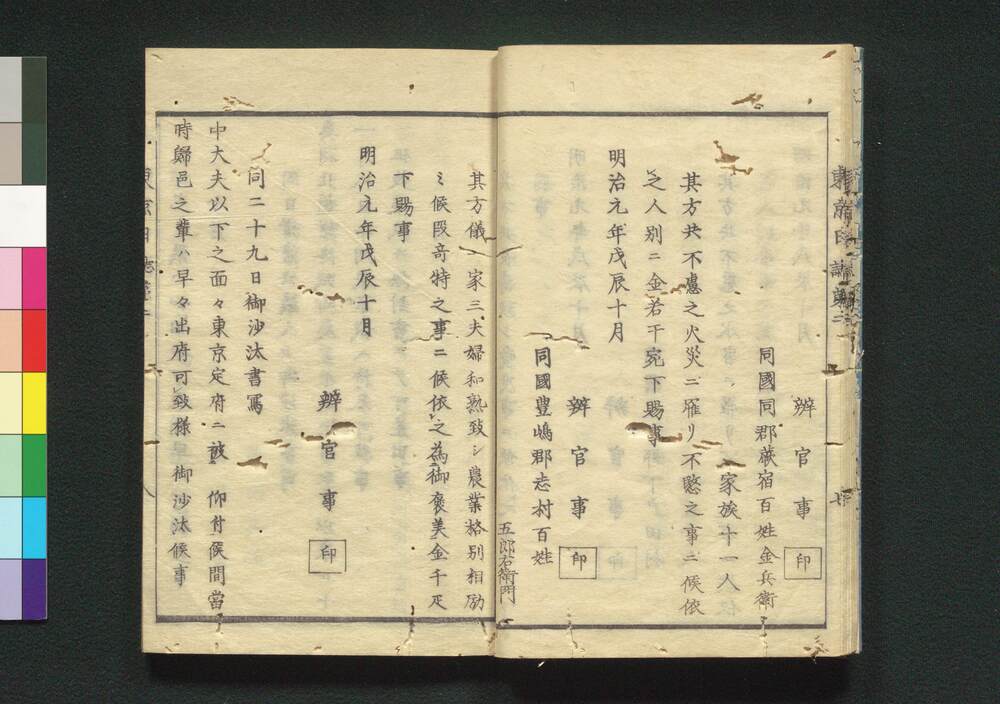 辨官事 印
同國同郡蕨宿百姓金兵衛
其方共不慮之火災ニ罹リ家族十一人
不愍之事ニ候依
之人別ニ金若干宛下賜事
明治元年戊辰十月
辨官事 印
同國豊嶋郡志村百姓
五郎右衛門
其方儀一家三夫婦和熟致シ農業格別相励
ミ候段奇特之事ニ候依之為御褒美金千疋
下賜事
明治元年戊辰十月
辨官事 印
同二十九日御沙汰書寫
中大夫以下之面々東京定府ニ被 仰付候間當
時歸邑之輩ハ早々出府可致様御沙汰候事